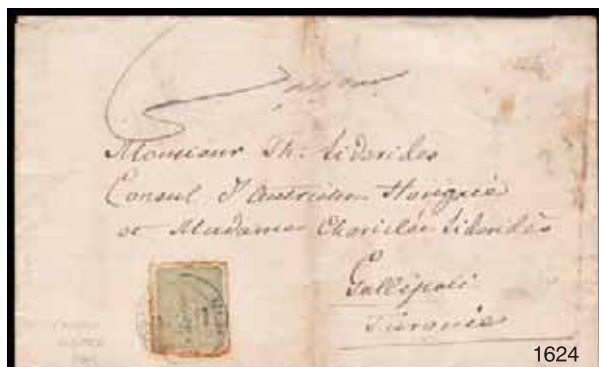 Monsieur Th. Sidaridès
Consul d'Autriche Hongrie
et Madame Chariclée Sidaridès
Gallipoli
Turquie
1624